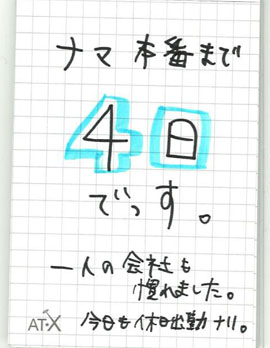 ナマ 本番まで
4日
でっす。
一人の会社も
慣れました。
AT-X 今日も休日出勤ナリ。